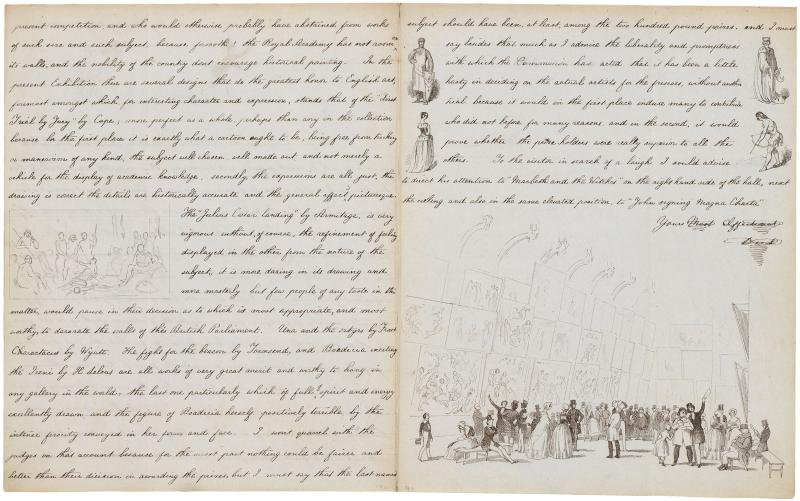 present competition, and who would otherwise probably have abstained from works
of such size and such subject, because, forsooth! the Royal Academy has not room on
its walls, and the nobility of the country dont encourage historical painting. In the
present Exhibition there are several designs that do the greatest honor to English art,
foremost amongst which for interesting character and expression, stands that of the "First
Trial by Jury" by Cope; more perfect as a whole, perhaps than any in the collection
because in the first place it is exactly what a cartoon ought to be, being free from trickery
or mannerism of any kind, the subject well chosen, well made out and not merely a
vehicle for the display of academic knowledge, secondly the expressions are all just, the
drawing is correct the details are historically accurate and the general effect picturesque.
The "Julius Cæsar landing" by Armitage, is very
vigorous without, of course, the refinement of feeling
displayed in the other from the nature of the
subject, it is more daring in its drawing and
more masterly but few people of any taste in the
matter, would pause in their decision as to which is most appropriate, and most
worthy, to decorate the walls of this British Parliament. Una and the satyrs by Frost
Charactacus by Watts. The fight for the beacon by Townsend, and Boadicia inciting
the Iceni by H. Selous are all works of very great merit and worthy to hang in
any gallery in the world, the last one particularly which is full of spirit and energy
excellently drawn and the figure of Boadicia herself positively terrible by the
intense ferocity conveyed in her form and face. I wont quarrel with the
judges on that account because for the most part nothing could be fairer and
better than their decision in awarding the prizes, but I must say that the last named
subject should have been, at least, among the two hundred pound prizes. and I must
say besides that much as I admire the liberality and promptness
with which the Commission has acted that it has been a little
hasty in deciding on the actual artists for the frescoes, without another
trial because it would in the first place induce many to contribute
who did not before for many reasons, and in the second, it would
prove whether the prize holders were really superior to all the
others. To the visitor in search of a laugh I would advise
to direct his attention to "Macbeth and the Witches" on the right hand side of the hall, next
the ceiling and also in the same elevated position, to "John signing Magna Charta"
Yours Most Affectionate